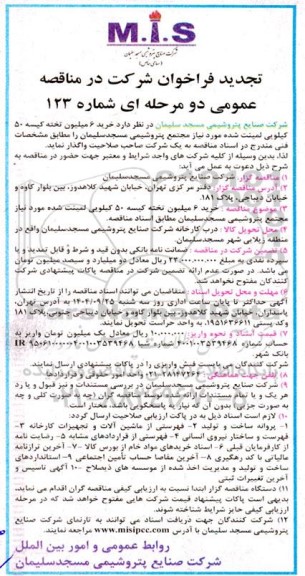 M.I.S
شرکت صنایع پتروشیمی مسجد سلیمان
(سهامی خاص)
تجدید فراخوان شرکت در مناقصه
عمومی دو مرحله ای شماره ۱۲۳
شرکت صنایع پتروشیمی مسجد سلیمان در نظر دارد خرید ۶ میلیون تخته کیسه ۵۰
کیلویی لمینت شده مورد نیاز مجتمع پتروشیمی مسجدسلیمان را مطابق مشخصات
فنی مندرج در اسناد مناقصه به یک شرکت صاحب صلاحیت واگذار نماید.
لذا، بدین وسیله از کلیه شرکت های واجد شرایط و معتبر جهت حضور در مناقصه به
شرح ذیل دعوت به عمل می آید:
۱) مناقصه گزار: شرکت صنایع پتروشیمی مسجدسلیمان
۲) آدرس مناقصه گزار: دفتر مرکزی تهران، خیابان شهید کلاهدوز، بین بلوار کاوه و
خیابان دیباجی، پلاک ۱۸۱
۳) موضوع مناقصه: خرید ۶ میلیون تخته کیسه ۵۰ کیلویی لمینت شده مورد نیاز
مجتمع پتروشیمی مسجدسلیمان مطابق اسناد مناقصه.
۴) محل تحویل کالا: درب کارخانه شرکت صنایع پتروشیمی مسجدسلیمان واقع در
منطقه زیلایی شهر مسجدسلیمان
۵) تضمین شرکت در مناقصه: ضمانت نامه بانکی بدون قید و شرط و قابل تمدید و یا
وجه نقدی به مبلغ ریال معادل دو میلیارد و سیصد میلیون تومان
می باشد. در صورت عدم ارائه تضمین شرکت در مناقصه پاکات پیشنهادی شرکت
کنندگان مفتوح نخواهد شد.
۶) مهلت و محل تحویل اسناد: متقاضیان می توانند اسناد مناقصه را از تاریخ انتشار
آگهی حداکثر تا پایان ساعت اداری روز سه شنبه ۱۴۰۴/۰۹/۲۵ به آدرس تهران،
پاسداران، خیابان شهید کلاهدوز، بین بلوار کاوه و خیابان دیباجی جنوبی، پلاک ۱۸۱
وکد پستی به واحد حراست تحویل نمایند.
۷) قیمت اسناد و نحوه واریز: ریال معادل یک میلیون تومان واریز به
حساب شماره شماره شبا IR
بانک شهر.
شرکت کنندگان می بایست فیش واریزی را در پاکتور پیشنهادی ارسال نمایند.
۸) تلفن هماهنگی: واحد بازرگانی (امور حقوقی و قراردادها)
۹) شرکت صنایع پتروشیمی مسجدسلیمان در بررسی مستندات و نیز قبول و یا رد
هر یک و یا تمامی مستندات ارائه شده توسط مناقصه گران (چه به صورت کلی و چه
به صورت جزیی) بدون آن که نیاز به پاسخگویی باشد، مختار است.
۱۰) لازم است اسناد ذیل به در پاکت ارزیابی صلاحیت ارسال گردد:
۱- پروانه ساخت و تولید ۲- فهرستی از ماشین آلات و تجهیزات کارخانه ۳-
فهرست و ساختار نیروی انسانی ۴- فهرستی از قراردادهای مشابه ۵- رضایت نامه
از کارفرمایان قبلی ۶- اسناد خریدهای مواد خام از بورس کالا ۷- آخرین ترازنامه
مالیاتی با کد رهگیری ۸- آخرین مفاصا حساب تأمین اجتماعی ۹- استانداردهای
ساخت و تولید و مدیریت اخذ شده از موسسه های ذیصلاح ۱۰- آگهی تاسیس و
آخرین تغییرات ثبتی
۱۱) دستگاه مناقصه گزار ابتدا نسبت به ارزیابی کیفی مناقصه گران اقدام می نماید،
بدیهی است پاکات پیشنهاد قیمت شرکت هایی مفتوح خواهد شد که در مرحله
ارزیابی کیفی حایز شرایط شناخته شوند.
۱۲) شرکت کنندگان جهت دریافت اسناد می توانند به تارنمای شرکت صنایع
پتروشیمی مسجد سلیمان با آدرس www.misipcc.com مراجعه نمایند.
روابط عمومی و امور بین الملل
شرکت صنایع پتروشیمی مسجدسلیمان